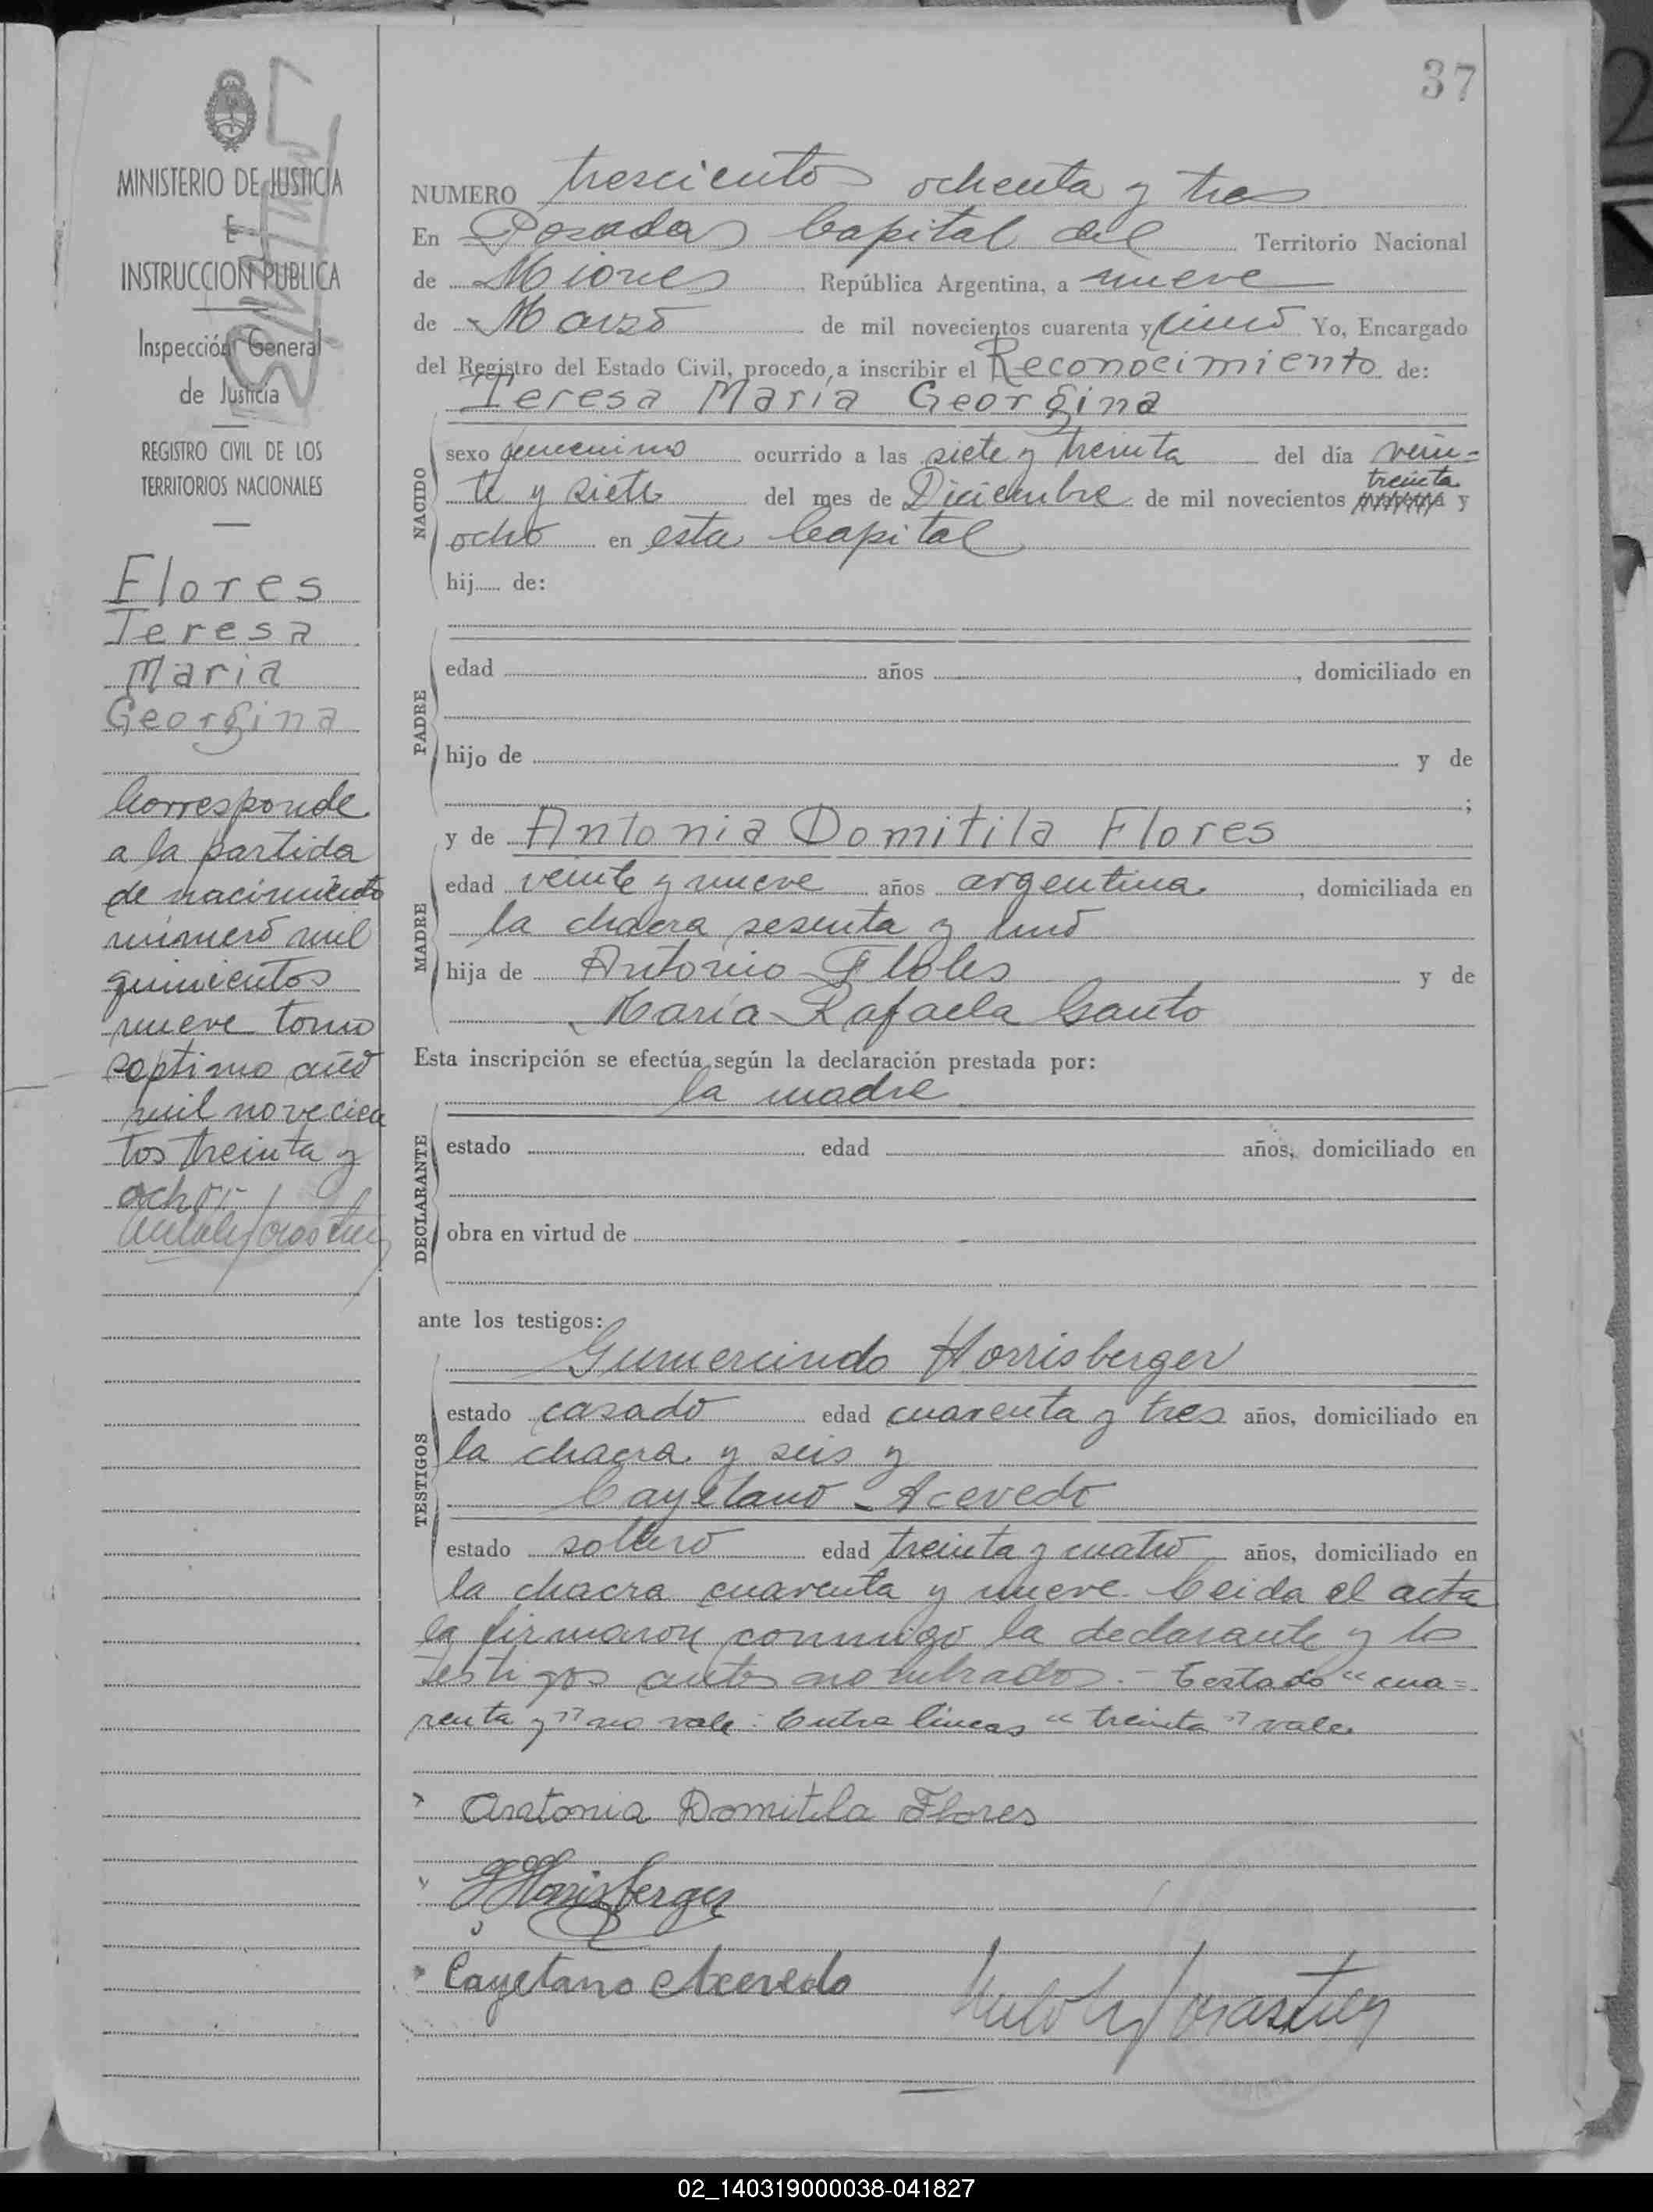 37
MINISTERIO DE JUSTICIA
E
INSTRUCCION PUBLICA
Inspección General
de Justicia
REGISTRO CIVIL DE LOS
TERRITORIOS NACIONALES
Flores
Teresa
Maria
Georgina
Corresponde
a la partida
de nacimiento
número mil
quinientos
nueve tomo
septimo año
mil novecien
tos treinta y
ocho.-
NUMERO trescientos ochenta y tres
En Posadas Capital del Territorio Nacional
de Miones República Argentina, a nueve
de Marzo de mil novecientos cuarenta y uno Yo, Encargado
del Registro del Estado Civil, procedo a inscribir el Reconocimiento de:
Teresa María Georgina
NACIDO
sexo femenino ocurrido a las siete y treinta del día vein=
treinta
te y siete del mes de Diciembre de mil novecientos y
ocho en esta Capital
hij..... de:
PADRE
edad años , domiciliado en
hijo de y de
;
MADRE
y de Antonia Domitila Flores
edad veinte y nueve años argentina , domiciliada en
la chacra sesenta y uno
hija de Antonio Flores y de
María Rafaela Canto
Esta inscripción se efectúa según la declaración prestada por:
la madre
DECLARANTE
estado edad años, domiciliado en
obra en virtud de
ante los testigos:
TESTIGOS
Gumercindo Horrisberger
estado casado edad cuarenta y tres años, domiciliado en
la chacra y seis y
Cayetano Acevedo
estado soltero edad treinta y cuatro años, domiciliado en
la chacra cuarenta y nueve. Leida el acta
la firmaron conmigo la declarante y los
testigos antes nombrados.- Testado "cua=
renta y" no vale: Entre líneas "treinta" vale.
Antonia Domitila Flores
Horrisberger
Cayetano Acevedo
02_140319000038-041827